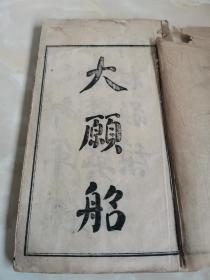 大願船